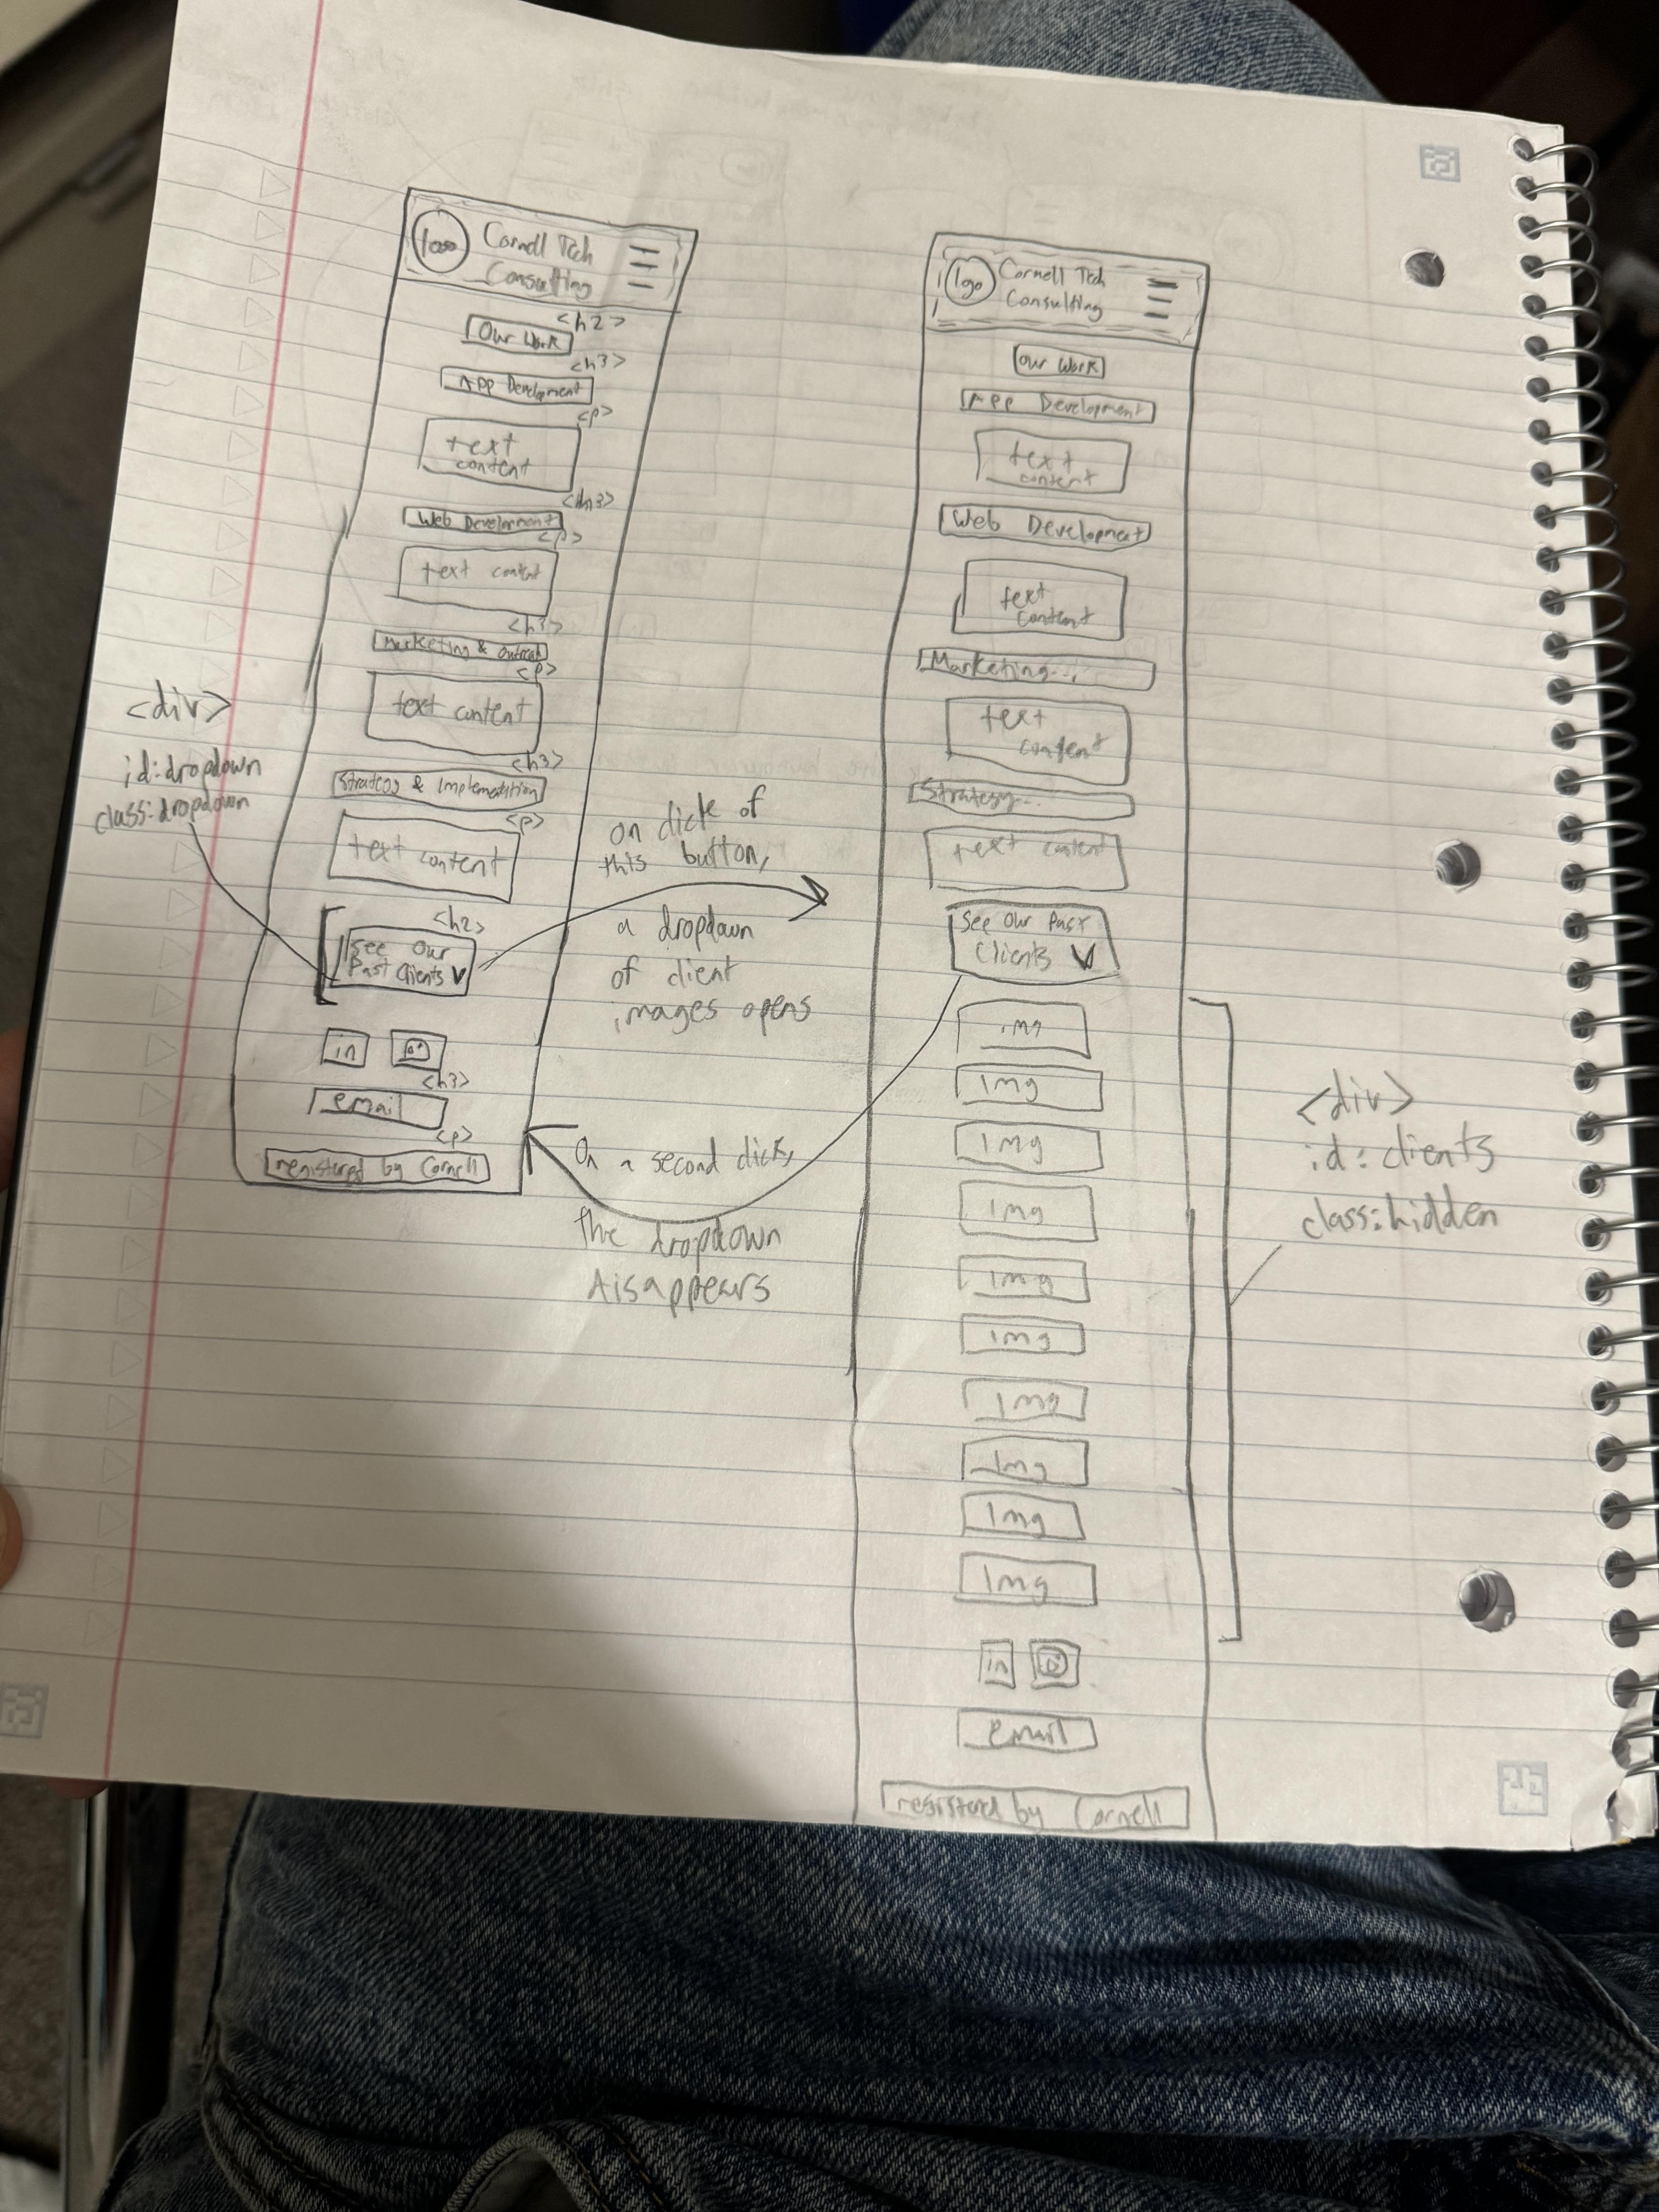 logo
Cornell Tech
Consulting
<h2>
Our Work
<h3>
App Development
<p>
text
content
<h3>
Web Development
<p>
text content
<h3>
Marketing & Outreach
<p>
text content
<h3>
Strategy & Implementation
<p>
text content
<h2>
See Our
Past Clients V
in
<h3>
email
<p>
registered by Cornell
<div>
id:dropdown
class:dropdown
on click of
this button,
a dropdown
of client
images opens
On a second click,
the dropdown
disappears
logo
Cornell Tech
Consulting
Our Work
App Development
text
content
Web Development
text
content
Marketing...
text
content
Strategy...
text content
See Our Past
Clients V
img
img
img
img
img
img
img
img
img
img
in
email
registered by Cornell
<div>
id: clients
class:hidden